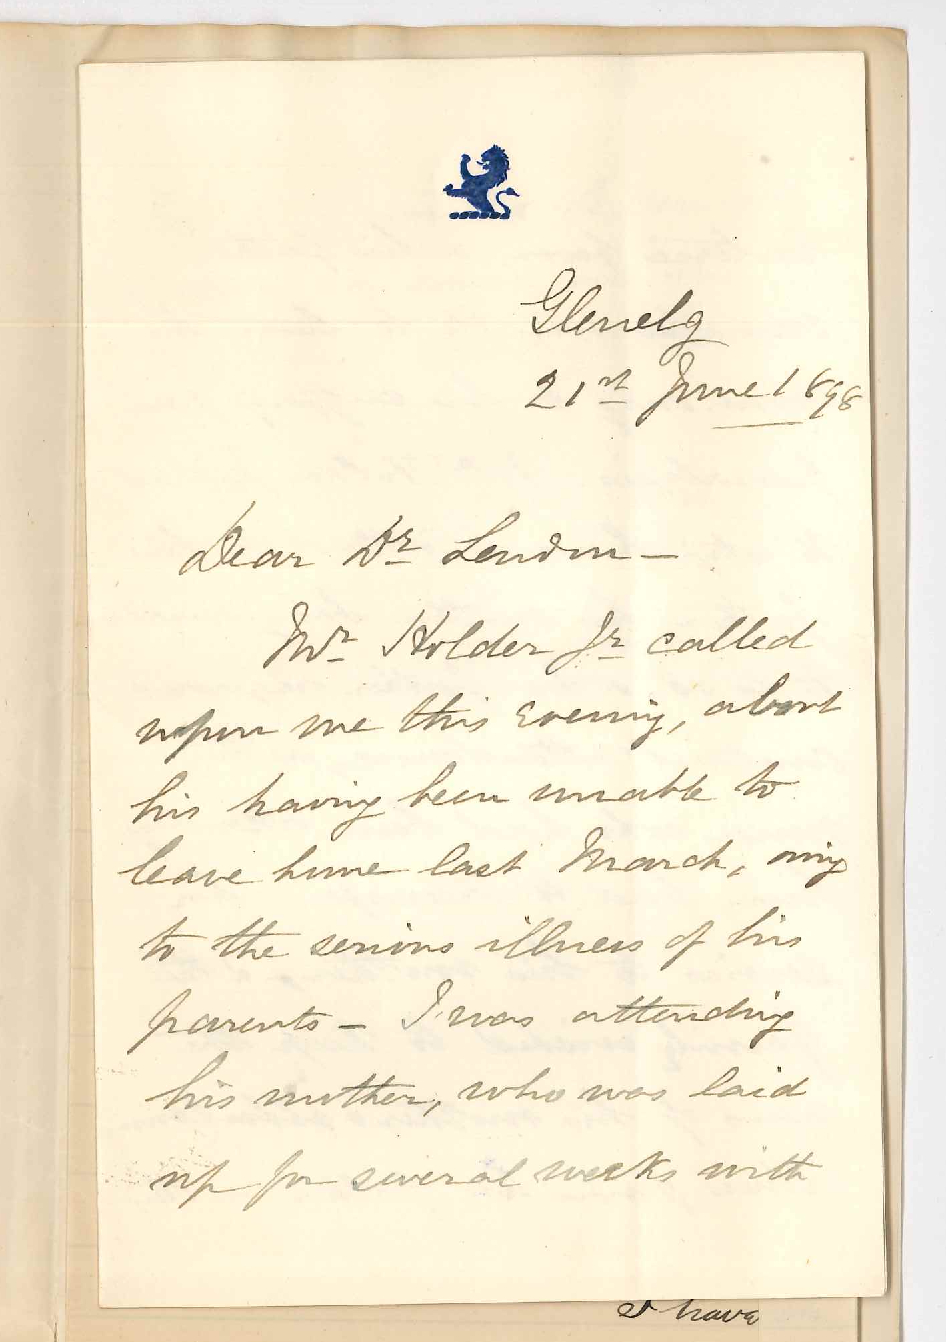 Glenelg
21st June 1898
Dear Dr Lendon —
Mr Holder Jr called
upon me this evening, about
his having been unable to
leave home last March, owing
to the serious illness of his
parents — I was attending
his mother, who was laid
up for several weeks with
I have